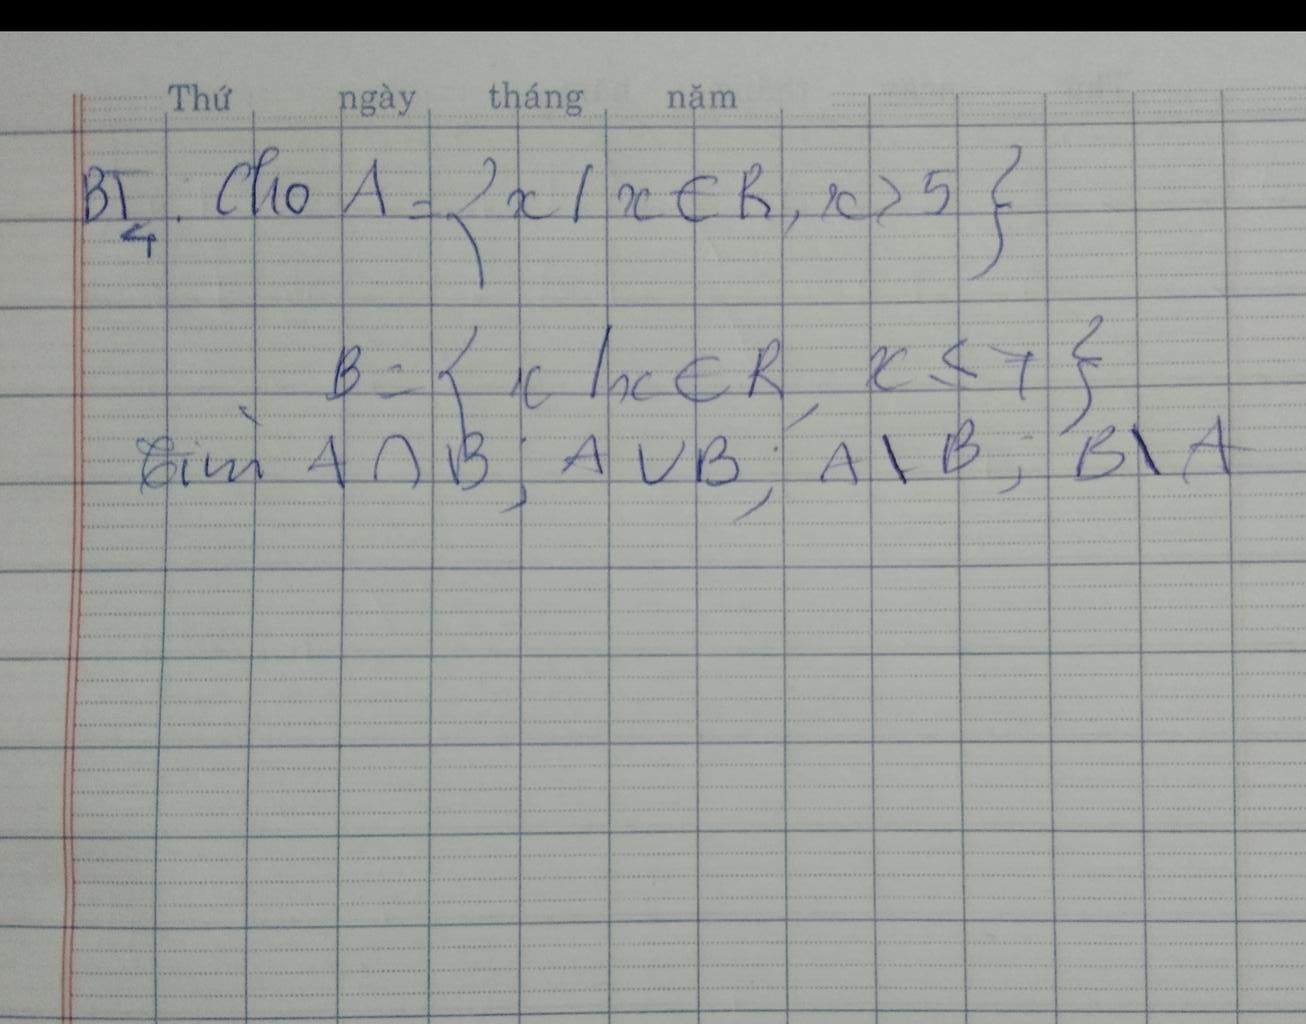 Thứ ngày tháng năm
BT4. Cho A = { x / x ∈ R, x > 5 }
B = { x / x ∈ R, x ≤ 7 }
tìm A ∩ B; A ∪ B; A \ B; B \ A